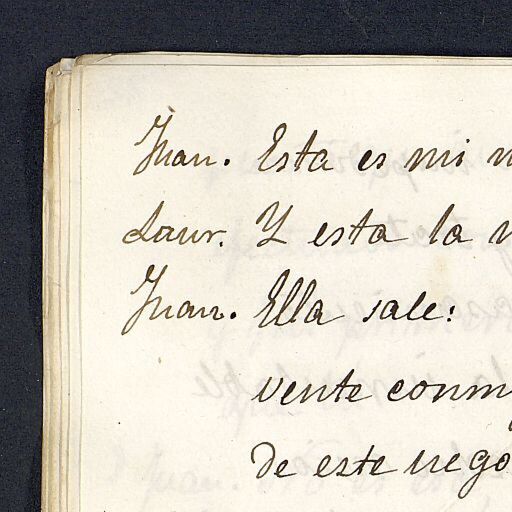 Juan. Esta es mi
Laur. Y esta la
Juan. Ella sale:
vente conm
de este nego